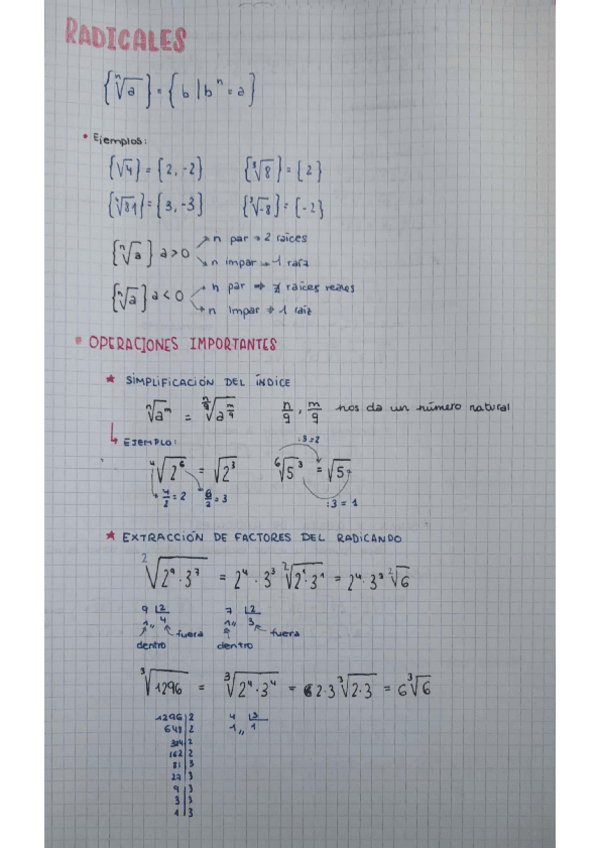 RADICALES
{ⁿ√a} = {b | bⁿ = a}
• Ejemplos:
{√4} = {2, -2} {³√8} = {2}
{⁴√81} = {3, -3} {³√-8} = {-2}
{ⁿ√a} a > 0 → n par → 2 raíces
→ n impar → 1 raíz
{ⁿ√a} a < 0 → n par ⇒ raíces reales
→ n impar → 1 raíz
• OPERACIONES IMPORTANTES
★ SIMPLIFICACIÓN DEL ÍNDICE
ⁿ√aᵐ = ^(n/q)√a^(m/q) n/q, m/q nos da un número natural
↳ EJEMPLO: :3=2
⁴√2⁶ = √2³ ⁶√5³ = √5
4/2 = 2 6/2 = 3 :3 = 1
★ EXTRACCIÓN DE FACTORES DEL RADICANDO
²√2⁹·3⁷ = 2⁴·3³ ²√2¹·3¹ = 2⁴·3³ ²√6
9 |2 7 |2
1,, 4 1,, 3
fuera fuera
dentro dentro
³√1296 = ³√2⁴·3⁴ = 2·3 ³√2·3 = 6 ³√6
1296|2 4 |3
648|2 1,, 1
324|2
162|2
81|3
27|3
9|3
3|3
1|3